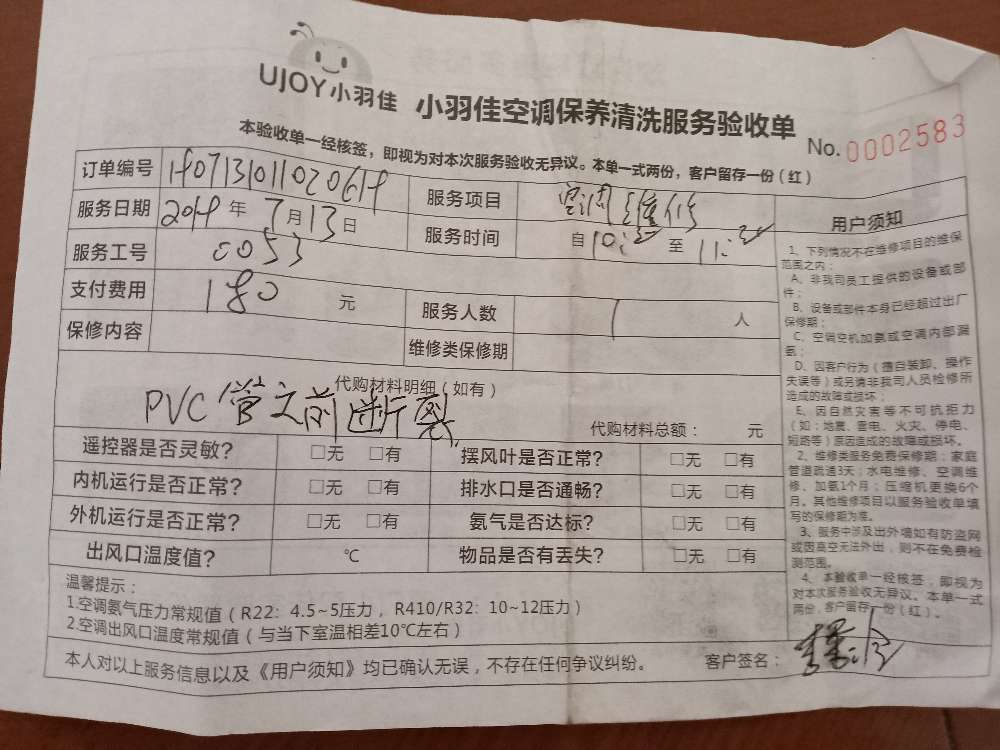 UJOY小羽佳 小羽佳空调保养清洗服务验收单
No. 0002583
本验收单一经核签，即视为对本次服务验收无异议。本单一式两份，客户留存一份（红）
订单编号
服务项目 空调维修
服务日期 年 7月13日
服务时间 自 至
服务工号 0053
支付费用 180 元
服务人数 1 人
保修内容
维修类保修期
代购材料明细（如有）
PVC管之前断裂
代购材料总额： 元
遥控器是否灵敏? □无 □有 摆风叶是否正常? □无 □有
内机运行是否正常? □无 □有 排水口是否通畅? □无 □有
外机运行是否正常? □无 □有 氨气是否达标? □无 □有
出风口温度值? ℃ 物品是否有丢失? □无 □有
温馨提示：
1.空调氨气压力常规值（R22：4.5~5压力，R410/R32：10~12压力）
2.空调出风口温度常规值（与当下室温相差10℃左右）
本人对以上服务信息以及《用户须知》均已确认无误，不存在任何争议纠纷。
客户签名：
用户须知
1、下列情况不在维修项目的维保
范围之内：
A、非我司员工提供的设备或部
件；
B、设备或部件本身已经超过出厂
保修期；
C、空调空机加氨或空调内部漏
氨；
D、因客户行为（擅自装卸、操作
失误等）或另请非我司人员检修所
造成的故障或损坏；
E、因自然灾害等不可抗拒力
（如：地震、雷电、火灾、停电、
短路等）原因造成的故障或损坏。
2、维修类服务免费保修期：家庭
管道疏通3天；水电维修、空调维
修、加氨1个月；压缩机更换6个
月。其他维修项目以服务验收单填
写的保修期为准。
3、服务中涉及出外墙如有防盗网
或因高空无法外出，则不在免费检
测范围。
4、本验收单一经核签，即视为
对本次服务验收无异议。本单一式
两份，客户留存一份（红）。